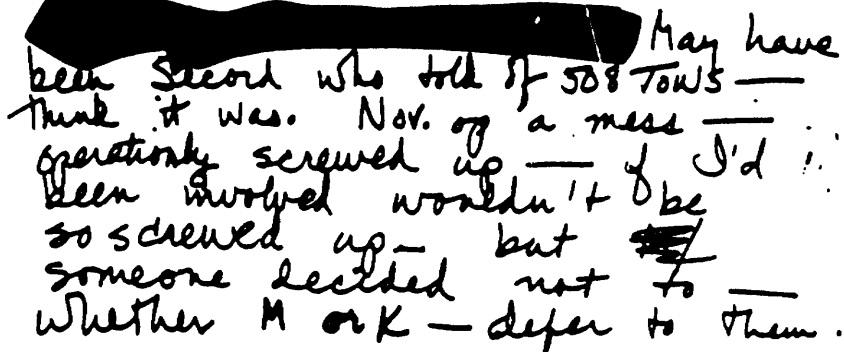 May have
been Secord who told of 508 TOWS —
think it was. Nov. op a mess —
operationly screwed up — if I'd
been involved wouldn't be
so screwed up — but
someone decided not to —
whether M or K — defer to them.